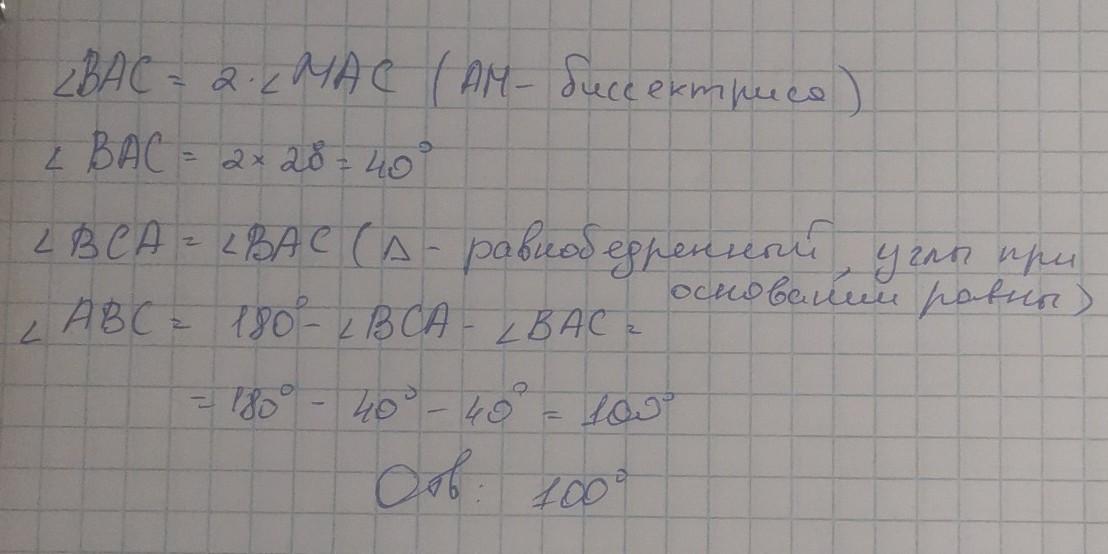 ∠BAC = 2·∠MAC (AM - биссектриса)
∠ BAC = 2 × 20 = 40°
∠BCA = ∠BAC (Δ - равнобедренный, углы при
основании равны)
∠ABC = 180° - ∠BCA - ∠BAC =
= 180° - 40° - 40° = 100°
Отв: 100°